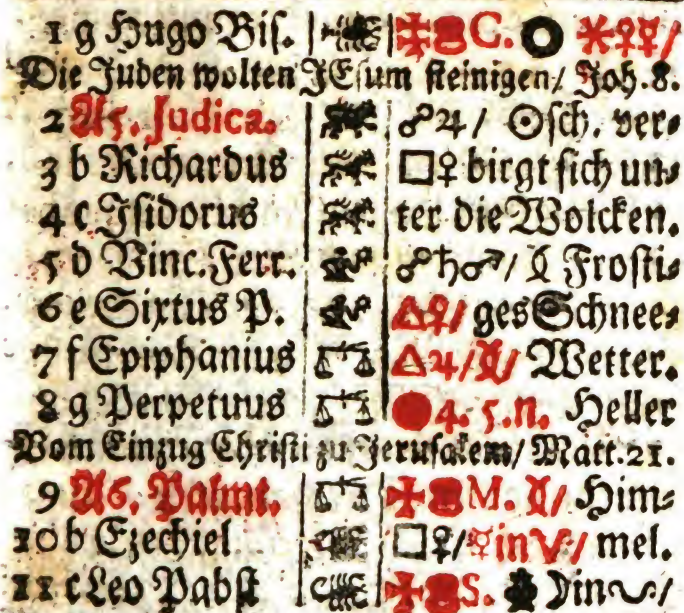 1 g Hugo Bis. C. ⚹♀☿/
Die Juden wolten JEsum steinigen/ Joh. 8.
2 A5. Judica. ☍♃/ ☉sch. ver-
3 b Richardus □♀ birgt sich un-
4 c Isidorus ter die Wolcken.
5 d Vinc. Ferr. ☍♄♂/ Frosti-
6 e Sixtus P. △♀/ ges Schnee-
7 f Epiphanius △♃/ Wetter.
8 g Perpetuus ●4. 5. n. Heller
Vom Einzug Christi zu Jerusalem/ Matt. 21.
9 A6. Palmt. M. Him-
10 b Ezechiel □♀/☿in♈/ mel.
11 c Leo Pabst S. ☽in